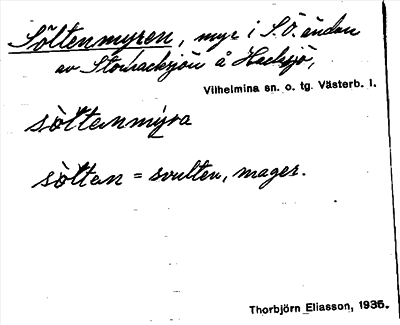 Söltenmyren, myr i S.Ö. ändan
av Storbacksjön å Hacksjö,
Vilhelmina sn. o. tg. Västerb. l.
sòltenmýra
sòlten = svulten, mager.
Thorbjörn Eliasson, 1935.